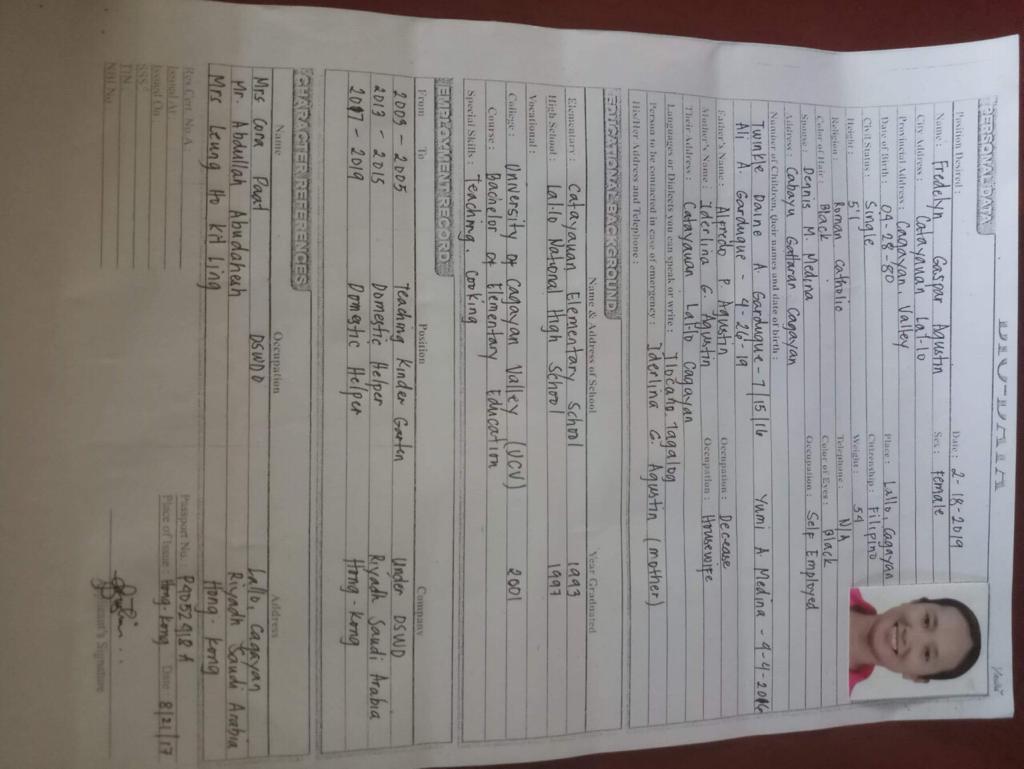 BIO-DATA
PERSONAL DATA
Position Desired : Date : 2-18-2019
Name : Fredelyn Gaspar Agustin Sex : Female
City Address : Catayauan Lal-lo
Provincial Address : Cagayan Valley
Date of Birth : 04-28-80 Place : Lallo Cagayan
Civil Status : Single Citizenship : Filipino
Height : 5'1 Weight : 54
Religion : Roman Catholic Telephone : N/A
Color of Hair : Black Color of Eyes : Black
Spouse : Dennis M. Medina Occupation : Self Employed
Address : Cabayu Gattaran Cagayan
Names of Children, their names and date of birth :
Twinkle Daine A. Garduque - 7/15/16 Yumi A Medina - 9-4-2016
Ali A. Garduque - 4-26-19
Father's Name : Alfredo P. Agustin Occupation : Decease
Mother's Name : Iderlina G. Agustin Occupation : Housewife
Their Address : Catayauan Lal-lo Cagayan
Languages or Dialects you can speak or write : Ilocano, Tagalog
Person to be contacted in case of emergency : Iderlina G. Agustin (mother)
His/Her Address and Telephone :
EDUCATIONAL BACKGROUND
Name & Address of School Year Graduated
Elementary : Catayauan Elementary School 1993
High School : Lal-lo National High School 1997
Vocational :
College : University of Cagayan Valley (UCV) 2001
Course : Bachelor of Elementary Education
Special Skills : Teaching, Cooking
EMPLOYMENT RECORD
From To Position Company
2003 - 2005 Teaching Kinder Garten Under DSWD
2013 - 2015 Domestic Helper Riyadh Saudi Arabia
2017 - 2019 Domestic Helper Hong-Kong
CHARACTER REFERENCES
Name Occupation Address
Mrs Cora Pagat DSWD Lallo, Cagayan
Mr. Abdullah Abudaheah Riyadh Saudi Arabia
Mrs Leung Ho Kit Ling Hong-Kong
Res Cert. No. A Passport No. : P4052918A
Issued At Place of Issue Hong Kong Date 8/21/17
Issued On
SSS
TIN
NBI No. Applicant's Signature